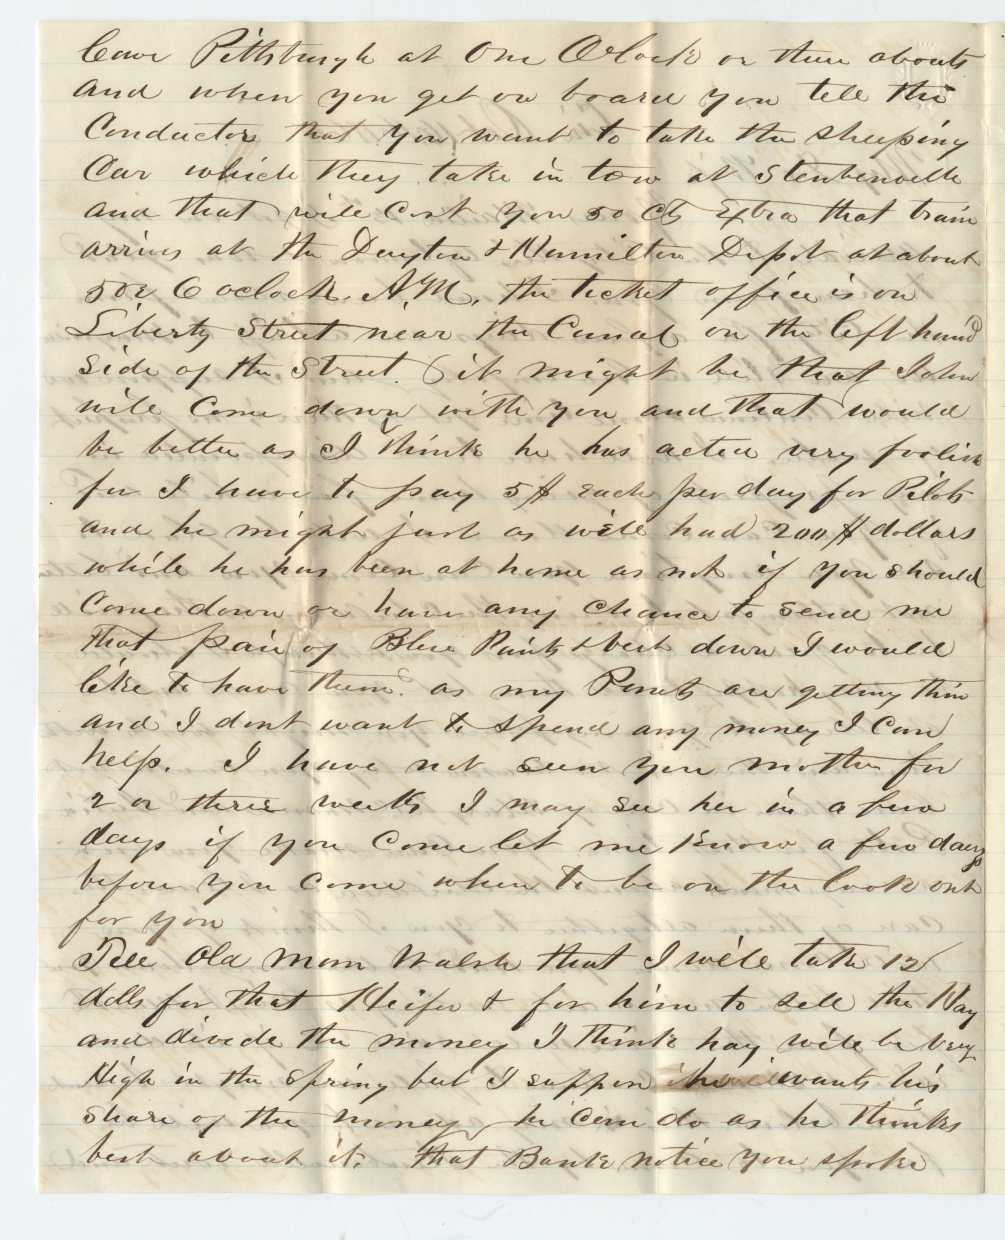 leave Pittsburgh at One O'clock or there abouts
and when you get on board you tell the
Conductor that you want to take the sleeping
Car which they take in tow at Steubenville
and that will cost you 50 cts Extra that train
arrives at the Dayton & Hamilton Depot at about
5 or 6 oclock. A.M. the ticket office is on
Liberty Street near the Canal on the left hand
side of the Street. it might be that John
will Come down with you and that would
be better as I think he has acted very foolish
for I have to pay 5$ Each per day for Pilots
and he might just as well had 200$ dollars
while he has been at home as not if you should
Come down or have any chance to send me
that pair of Blue Pants & vest down I would
like to have them as my Pants are getting thin
and I dont want to spend any money I can
help. I have not seen you mother for
2 or three weeks I may see her in a few
days if you Come let me Know a few days
before you come when to be on the look out
for you
Tell Old Mom Walsh that I will take 12
dolls for that Heifer & for him to sell the Hay
and divide the money I think hay will be very
High in the Spring but I suppose he wants his
share of the money he can do as he thinks
best about it. that Bank notice you spoke